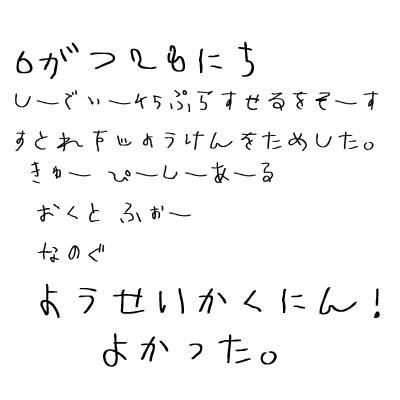 6がつ26にち
しーでぃー45ぷらすせるをそーす
すとれすじょうけんをためした。
きゅー ぴーしーあーる
おくと ふぉー
なのぐ
ようせいかくにん!
よかった。